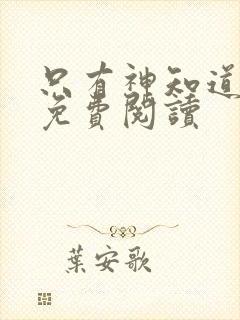 只有神知道
免費閱讀
葉安歌